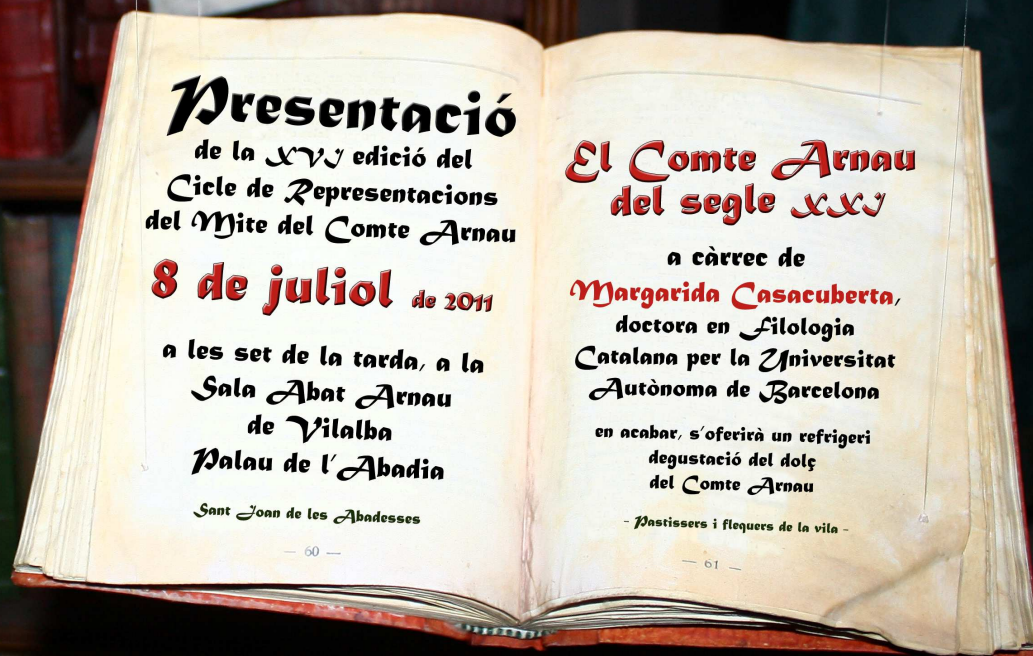 Presentació
de la XVI edició del
Cicle de Representacions
del Mite del Comte Arnau
8 de juliol de 2011
a les set de la tarda, a la
Sala Abat Arnau
de Vilalba
Palau de l'Abadia
Sant Joan de les Abadesses
— 60 —
El Comte Arnau
del segle XXI
a càrrec de
Margarida Casacuberta,
doctora en Filologia
Catalana per la Universitat
Autònoma de Barcelona
en acabar, s'oferirà un refrigeri
degustació del dolç
del Comte Arnau
- Pastissers i flequers de la vila -
— 61 —